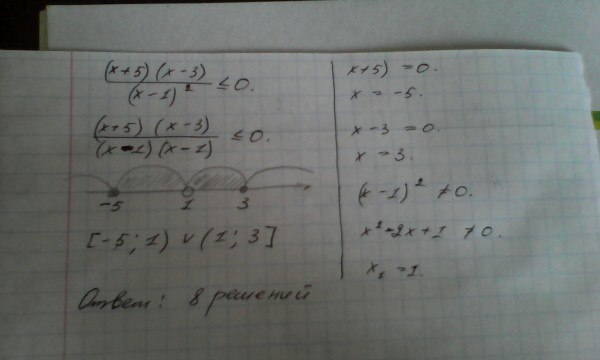 (x+5) (x-3) / (x-1)² ≤ 0.
(x+5) (x-3) / (x-1) (x-1) ≤ 0.
-5 1 3
[-5; 1) ∨ (1; 3]
Ответ: 8 решений
x+5) = 0.
x = -5.
x-3 = 0.
x = 3.
(x-1)² ≠ 0.
x²-2x+1 ≠ 0.
x₁ = 1.